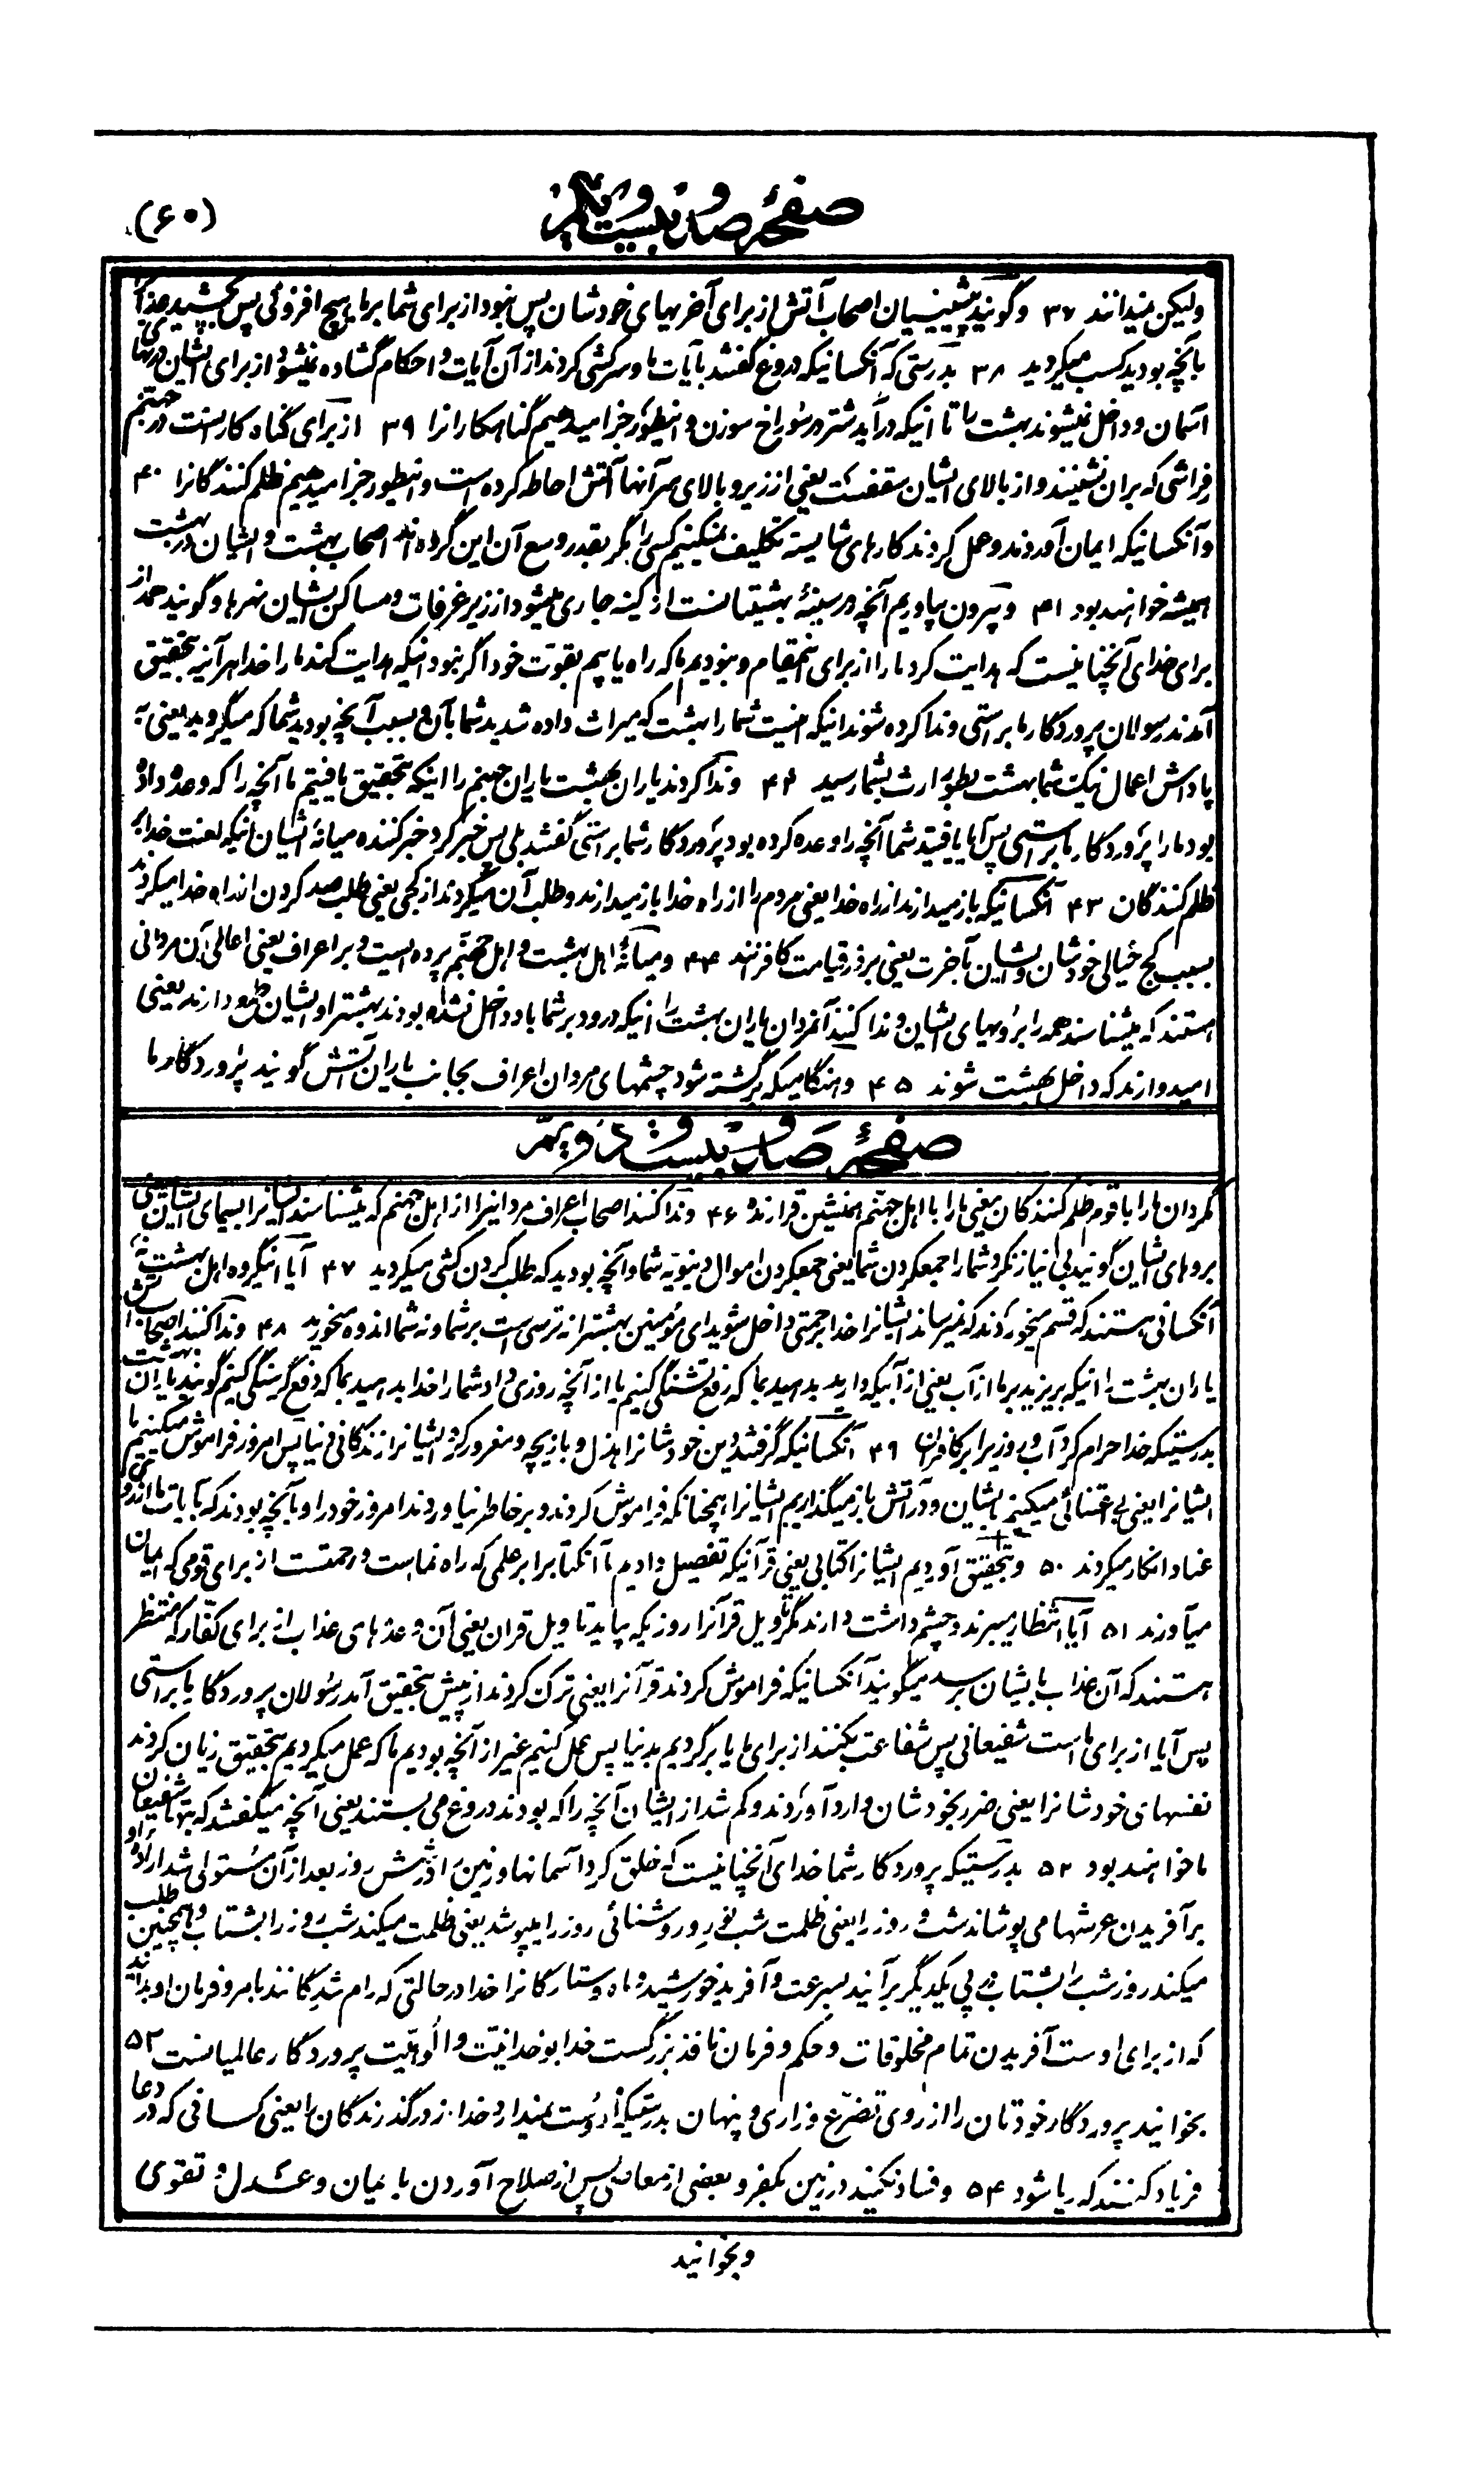 صفحهٔ صد و بیست و یکم
(۶۰)
ولیکن نمیدانند ۳۷ و گویند پیشینیان اصحاب آتش از برای آخریهای خودشان پس نبود از برای شما بر ما هیچ افزونی پس بچشید عذاب
بآنچه بودید کسب میکردید ۳۸ بدرستی که آنکسانیکه دروغ گفتند بآیات ما و سرکشی کردند از آن آیات و احکام گشاده نمیشود از برای ایشان درهای
آسمان و داخل نمیشوند بهشت را تا انیکه در آید شتر در سوراخ سوزن و اینطور جزا میدهیم گناهکارانرا ۳۹ از برای گناه کارانست در جهنم
فراشی که بران نشینند و از بالای ایشان سقفست یعنی از زیر و بالای سر آنها آتش احاطه کرده است و اینطور جزا میدهیم ظلم کنندگانرا ۴۰
و آنکسانیکه ایمان آوردند و عمل کردند کارهای شایسته تکلیف نمیکنیم کسی را مگر بقدر وسع آن این گروه اند اصحاب بهشت و ایشان در بهشت
همیشه خواهند بود ۴۱ و بیرون بیاوریم آنچه در سینهٔ بهشتیانست از کینه جاری میشود از زیر غرفات و مساکن ایشان نهرها و گویند حمد از
برای خدای آنچنانیست که هدایت کرد ما را از برای این مقام و نبودیم ما که راه یابیم بقوت خود اگر نبود انیکه هدایت کند ما را خدا هر آینه بتحقیق
آمدند رسولان پروردگار ما براستی و ندا کرده شوند انیکه اینست شما را بهشت که میراث داده شدید شما بآن و بسبب آنچه بودید شما که میگروید یعنی به
پاداش اعمال نیک شما بهشت بطور ارث بشما رسید ۴۲ و ندا کردند یاران بهشت یاران جهنم را اینکه بتحقیق یافتیم ما آنچه را که وعده داده
بود ما را پروردگار ما براستی پس آیا یافتید شما آنچه را وعده کرده بود پروردگار شما براستی گفتند بلی پس خبر کرد خبر کننده میانهٔ ایشان انیکه لعنت خدا بر
ظلم کنندگان ۴۳ آنکسانیکه باز میدارند از راه خدا یعنی مردم را از راه خدا باز میدارند و طلب آن میکردند از کجی یعنی طلب صد کردن از راه خدا میکردند
بسبب کج خیالی خودشان و ایشان بآخرت یعنی بروز قیامت کافرند ۴۴ و میانهٔ اهل بهشت و اهل جهنم پرده ایست و بر اعراف یعنی اعالی آن مردانی
هستند که میشناسند همه را بر رویهای ایشان و ندا کنند آنمردان یاران بهشت را انیکه درود بر شما باد داخل نشده بودند بهشترا و ایشان طمع دارند یعنی
امیدوارند که داخل بهشت شوند ۴۵ و هنگامیکه برگشته شود چشمهای مردان اعراف بجانب یاران آتش گویند پروردگار ما
صفحهٔ صد و بیست و دویم
مگردان ما را با قوم ظلم کنندگان یعنی ما را با اهل جهنم همنشین قرار نده ۴۶ و ندا کنند اصحاب اعراف مردانیرا از اهل جهنم که میشناسند ایشانرا بسیمای ایشان یعنی
بروهای ایشان گویند بی نیاز نکرد شما را جمعکردن شما یعنی جمعکردن اموال دنیویه شما و آنچه بودید که طلب گردن کشی میکردید ۴۷ آیا اینگروه اهل بهشت
آنکسانی هستند که قسم میخوردند که نمیرساند ایشانرا خدا برحمتی داخل شوید ای مؤمنین بهشترا نه ترسی است بر شما و نه شما اندوه میخورید ۴۸ و ندا کنند اصحاب آتش
یاران بهشت را انیکه بریزید بر ما از آب یعنی از آبیکه دارید بدهید بما که رفع تشنگی کنیم یا از آنچه روزی داد شما را خدا بدهید بما که دفع گرسنگی کنیم گویند یاران بهشت
بدرستیکه خدا حرام کرد آب و روزیرا بر کافران ۴۹ آنکسانیکه گرفتند دین خودشانرا هزل و بازیچه و مغرور کرد ایشانرا زندگانی دنیا پس امروز فراموش میکنیم ما
ایشانرا یعنی بی اعتنائی میکنیم بایشان و در آتش باز میگذاریم ایشانرا همچنانکه فراموش کردند و بر خاطر نیاوردند امروز خود را و بآنچه بودند که بآیات ما از روی
عناد انکار میکردند ۵۰ و بتحقیق آوردیم ایشانرا کتابی یعنی قرآنیکه تفصیل دادیم ما آنکتابرا بر علمی که راه نماست و رحمتست از برای قومی که ایمان
میآورند ۵۱ آیا انتظار میبرند و چشم داشت دارند مگر تاویل قرآنرا روزیکه بیاید تاویل قران یعنی آن وعدهای عذاب از برای کفار که منتظر
هستند که آن عذاب بایشان برسد میگویند آنکسانیکه فراموش کردند قرآنرا یعنی ترک کردند از پیش بتحقیق آمد رسولان پروردگار ما براستی
پس آیا از برای ما است شفیعانی پس شفاعت بکنند از برای ما یا برگردیم بدنیا پس عمل کنیم غیر از آنچه بودیم ما که عمل میکردیم بتحقیق زیان کردند
نفسهای خودشانرا یعنی ضرر بخودشان وارد آوردند و گم شد از ایشان آنچه را که بودند دروغ می بستند یعنی آنچه میگفتند که بتها شفیعان
ما خواهند بود ۵۲ بدرستیکه پروردگار شما خدای آنچنانیست که خلق کرد آسمانها و زمین را در شش روز بعد از آن مستولی شد اراده او
بر آفریدن عرشها می پوشاند شب و روز را یعنی ظلمت شب نور و روشنائی روز را میپوشد یعنی ظلمت میکند شب روز را بشتاب و همچنین طلب
میکند روز شب را بشتاب در پی یکدیگر بر آیند بسرعت و آفرید خورشید و ماه و ستارگانرا خدا در حالتی که رام شدگانند بامر و فرمان او بدانید
که از برای اوست آفریدن تمام مخلوقات و حکم و فرمان نافذ بزرگست خدا بوحدانیت و الوهیت پروردگار عالمیانست ۵۳
بخوانید پروردگار خودتان را از روی تضرع و زاری و پنهان بدرستیکه او دوست نمیدارد خدا از در گذرندگان را یعنی کسانی که در دعا
فریاد کنند که ریا شود ۵۴ و فساد نکنید در زمین بکفر و بعضی از معاصی پس از صلاح آوردن با یمان و عدل و تقوی
و بخوانید